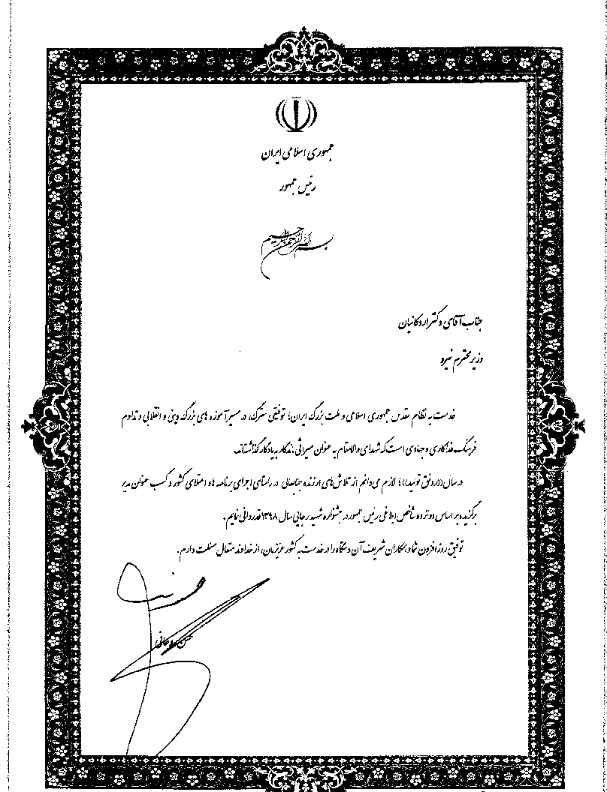 جمهوری اسلامی ایران
رئیس جمهور
بسم الله الرحمن الرحیم
جناب آقای دکتر اردکانیان
وزیر محترم نیرو
خدمت به نظام مقدس جمهوری اسلامی و ملت بزرگ ایران، توفیقی سترگ، در مسیر آموزه های بزرگ دینی و انقلابی و تداوم
فرهنگ فداکاری و جهادی است که شهدای والامقام به عنوان میراثی ماندگار به یادگار گذاشتند.
در سال «رونق تولید» لازم می دانم از تلاش های ارزنده جنابعالی در راستای اجرای برنامه ها و اعتلای کشور و کسب عنوان مدیر
برگزیده بر اساس دوازده شاخص ابلاغی رئیس جمهور در جشنواره شهید رجایی سال ۱۳۹۸ قدردانی نمایم.
توفیق روزافزون شما و همکاران شریف آن دستگاه را در خدمت به کشور عزیزمان، از خداوند متعال مسئلت دارم.
حسن روحانی